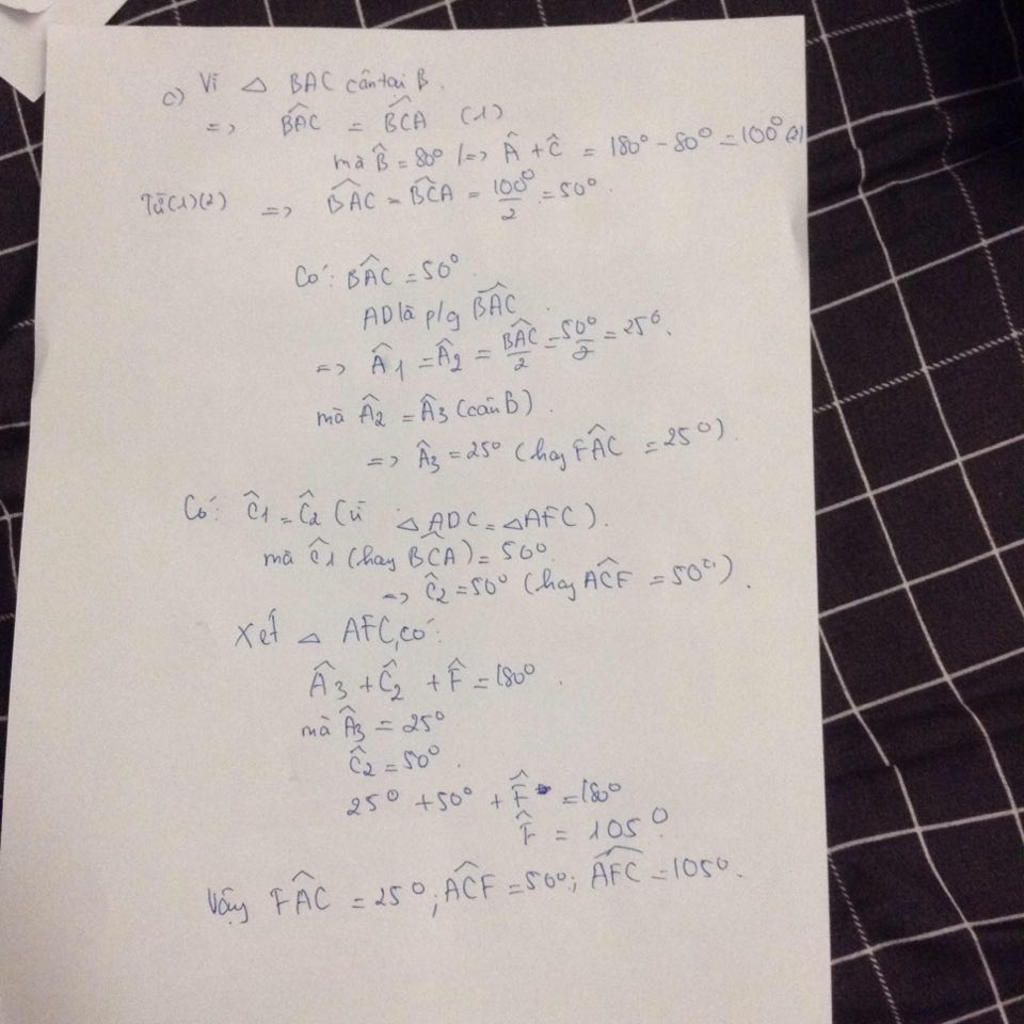 c) Vì △ BAC cân tại B.
=> B̂AC = B̂CA (1)
mà B̂ = 80° => Â + Ĉ = 180° - 80° = 100° (2)
Từ (1)(2) => B̂AC = B̂CA = 100°/2 = 50°.
Có: B̂AC = 50°.
AD là p/g B̂AC.
=> Â1 = Â2 = B̂AC/2 = 50°/2 = 25°.
mà Â2 = Â3 (câu B).
=> Â3 = 25° (hay F̂AC = 25°).
Có: Ĉ1 = Ĉ2 (vì △ADC = △AFC).
mà Ĉ1 (hay B̂CA) = 50°
=> Ĉ2 = 50° (hay ÂCF = 50°).
Xét △ AFC, có:
Â3 + Ĉ2 + F̂ = 180°.
mà Â3 = 25°
Ĉ2 = 50°.
25° + 50° + F̂ = 180°
F̂ = 105°
Vậy F̂AC = 25°; ÂCF = 50°; ÂFC = 105°.